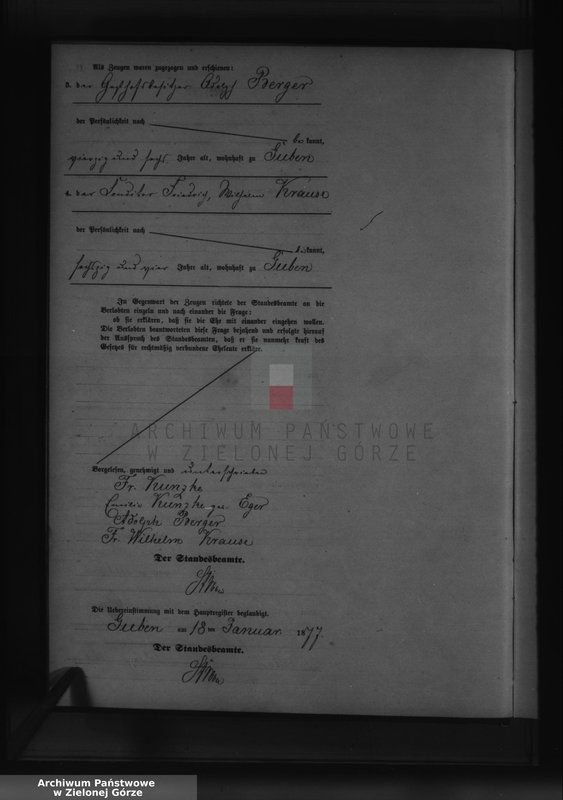 Als Zeugen waren zugezogen und erschienen:
3. der Geschäftsbesitzer Adolph Berger
der Persönlichkeit nach
be kannt,
vierzig und sechs Jahre alt, wohnhaft zu Guben
4. der Conditor Friedrich, Wilhelm Krause
der Persönlichkeit nach
kannt,
sechszig und vier Jahre alt, wohnhaft zu Guben
In Gegenwart der Zeugen richtete der Standesbeamte an die
Verlobten einzeln und nach einander die Frage:
ob sie erklären, daß sie die Ehe mit einander eingehen wollen.
Die Verlobten beantworteten diese Frage bejahend und erfolgte hierauf
der Ausspruch des Standesbeamten, daß er sie nunmehr kraft des
Gesetzes für rechtmäßig verbundene Eheleute erkläre.
ARCHIWUM PAŃSTWOWE
W ZIELONEJ GÓRZE
Vorgelesen, genehmigt und unterschrieben
Fr. Kunzke
Emilie Kunzke geb. Eger
Adolph Berger
Fr. Wilhelm Krause
Der Standesbeamte.
Die Uebereinstimmung mit dem Hauptregister beglaubigt.
Guben am 13ten Januar 1877.
Der Standesbeamte.
Archiwum Państwowe
w Zielonej Górze